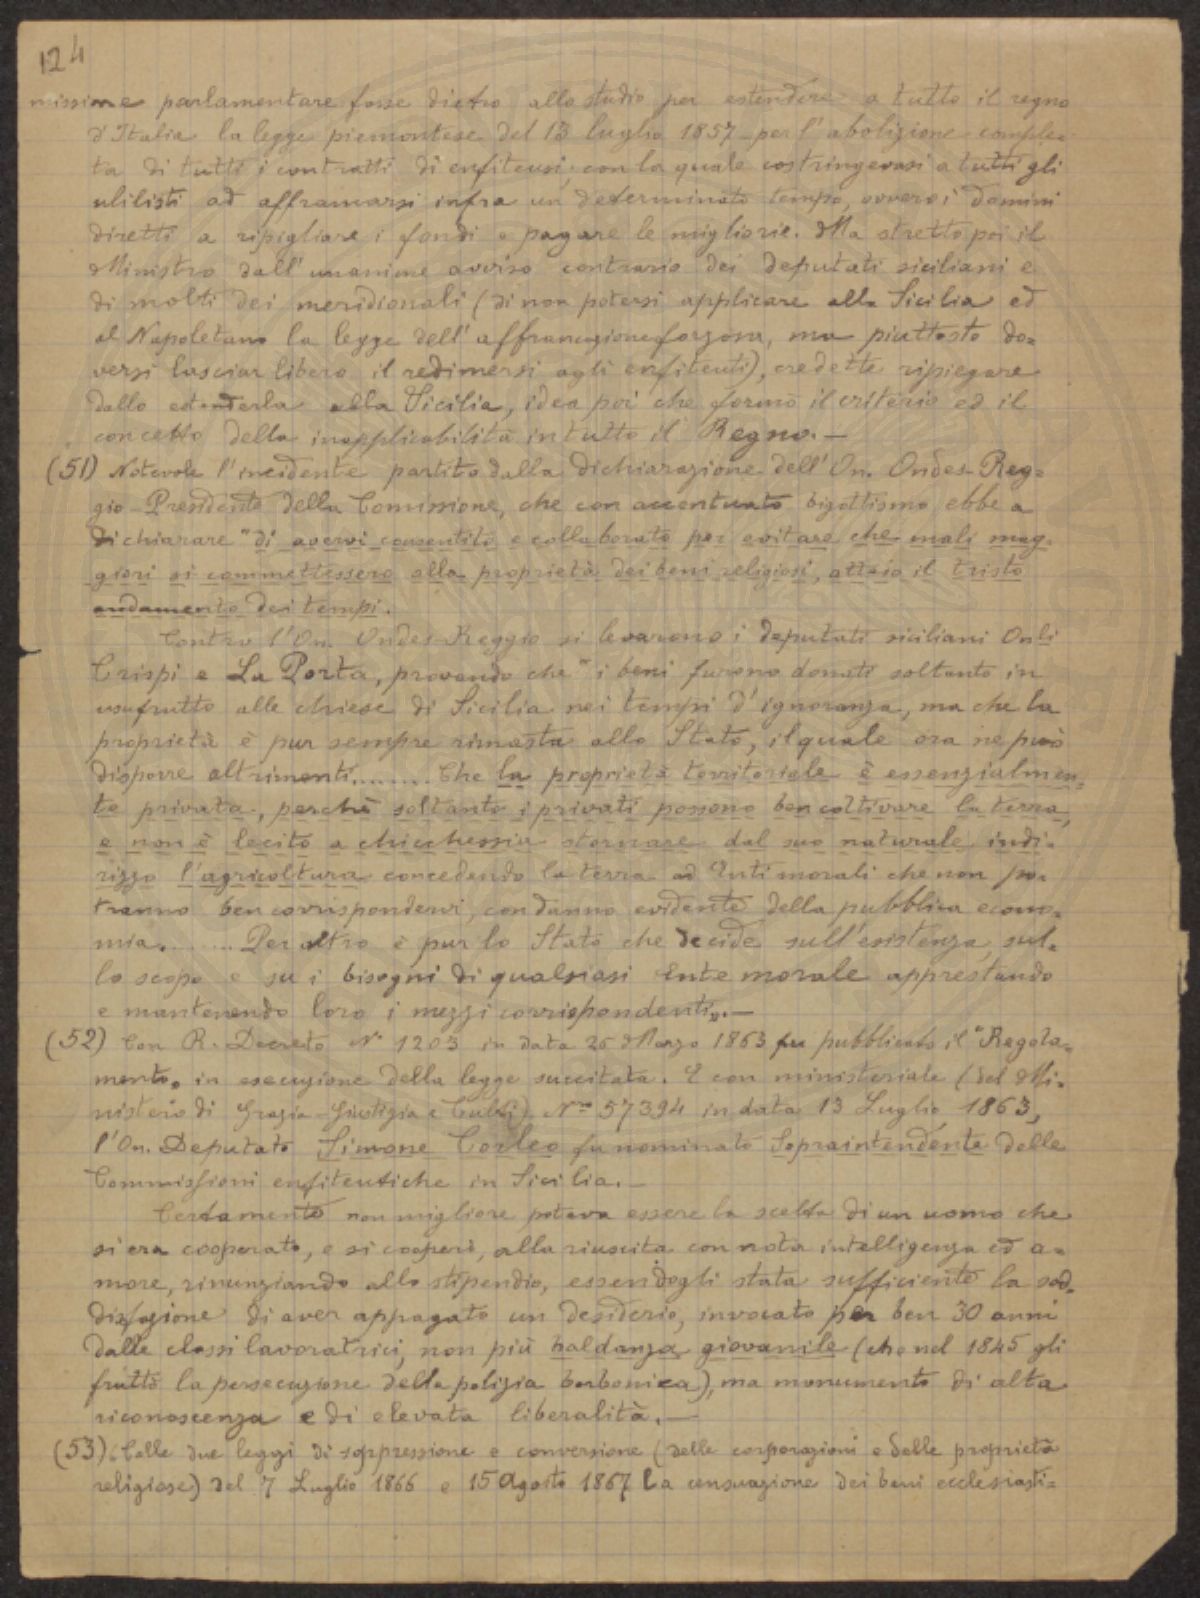 124
missione parlamentare fosse dietro allo studio per estendere a tutto il regno
d'Italia la legge piemontese del 13 luglio 1857 per l'abolizione comple-
ta di tutti i contratti di enfiteusi; con la quale costringevasi a tutti gli
utilisti ad affrancarsi infra un determinato tempo, ovvero i domini
diretti a ripigliare i fondi e pagare le migliorie. Ma stretto poi il
Ministro dall'unanime avviso contrario dei deputati siciliani e
di molti dei meridionali (di non potersi applicare alla Sicilia ed
al Napoletano la legge dell'affrancazione forzosa, ma piuttosto do=
versi lasciar libero il redimersi agli enfiteuti), credette ripiegare
dallo estenderla alla Sicilia, idea poi che formò il criterio ed il
concetto della inapplicabilità in tutto il Regno.—
(51) Notevole l'incidente partito dalla dichiarazione dell'On. Ondes-Reg=
gio-Presidente della Comissione, che con accentuato bigottismo ebbe a
dichiarare "di avervi consentito e collaborato per evitare che mali mag-
giori si commettessero alla proprietà dei beni religiosi, atteso il tristo
andamento dei tempi.
Contro l'On. Ondes-Reggio si levarono i deputati siciliani Onli
Crispi e La Porta, provando che "i beni furono donati soltanto in
usufrutto alle chiese di Sicilia nei tempi d'ignoranza, ma che la
proprietà è pur sempre rimasta allo Stato, il quale ora ne può
disporre altrimenti........ Che la proprietà territoriale è essenzialmen-
te privata, perchè soltanto i privati possono ben coltivare la terra,
e non è lecito a chicchessia stornare dal suo naturale indi-
rizzo l'agricoltura concedendo la terra ad Enti morali che non po-
tranno ben corrispondervi, con danno evidente della pubblica econo-
mia........ Per altro è pur lo Stato che decide sull'esistenza, sul-
lo scopo e su i bisogni di qualsiasi Ente morale apprestando
e mantenendo loro i mezzi corrispondenti„.—
(52) Con R. Decreto N° 1203 in data 26 Marzo 1863 fu pubblicato il "Regola=
mento„ in esecuzione della legge succitata. E con ministeriale (del Mi-
nistero di Grazia-Giustizia e Culti) N.ro 57394 in data 13 Luglio 1863,
l'On. Deputato Simone Corleo fu nominato Sopraintendente delle
Commissioni enfiteutiche in Sicilia.—
Certamente non migliore poteva essere la scelta di un uomo che
si era cooperato, e si cooperò, alla riuscita con nota intelligenza ed a=
more, rinunziando allo stipendio, essendogli stata sufficiente la sod-
disfazione di aver appagato un desiderio, invocato per ben 30 anni
dalle classi lavoratrici, non più baldanza giovanile (che nel 1845 gli
fruttò la persecuzione della polizia borbonica), ma monumento di alta
riconoscenza e di elevata liberalità.—
(53) Colle due leggi di soppressione e conversione (delle corporazioni e delle proprietà
religiose) del 7 Luglio 1866 e 15 Agosto 1867 la censuazione dei beni ecclesiasti=